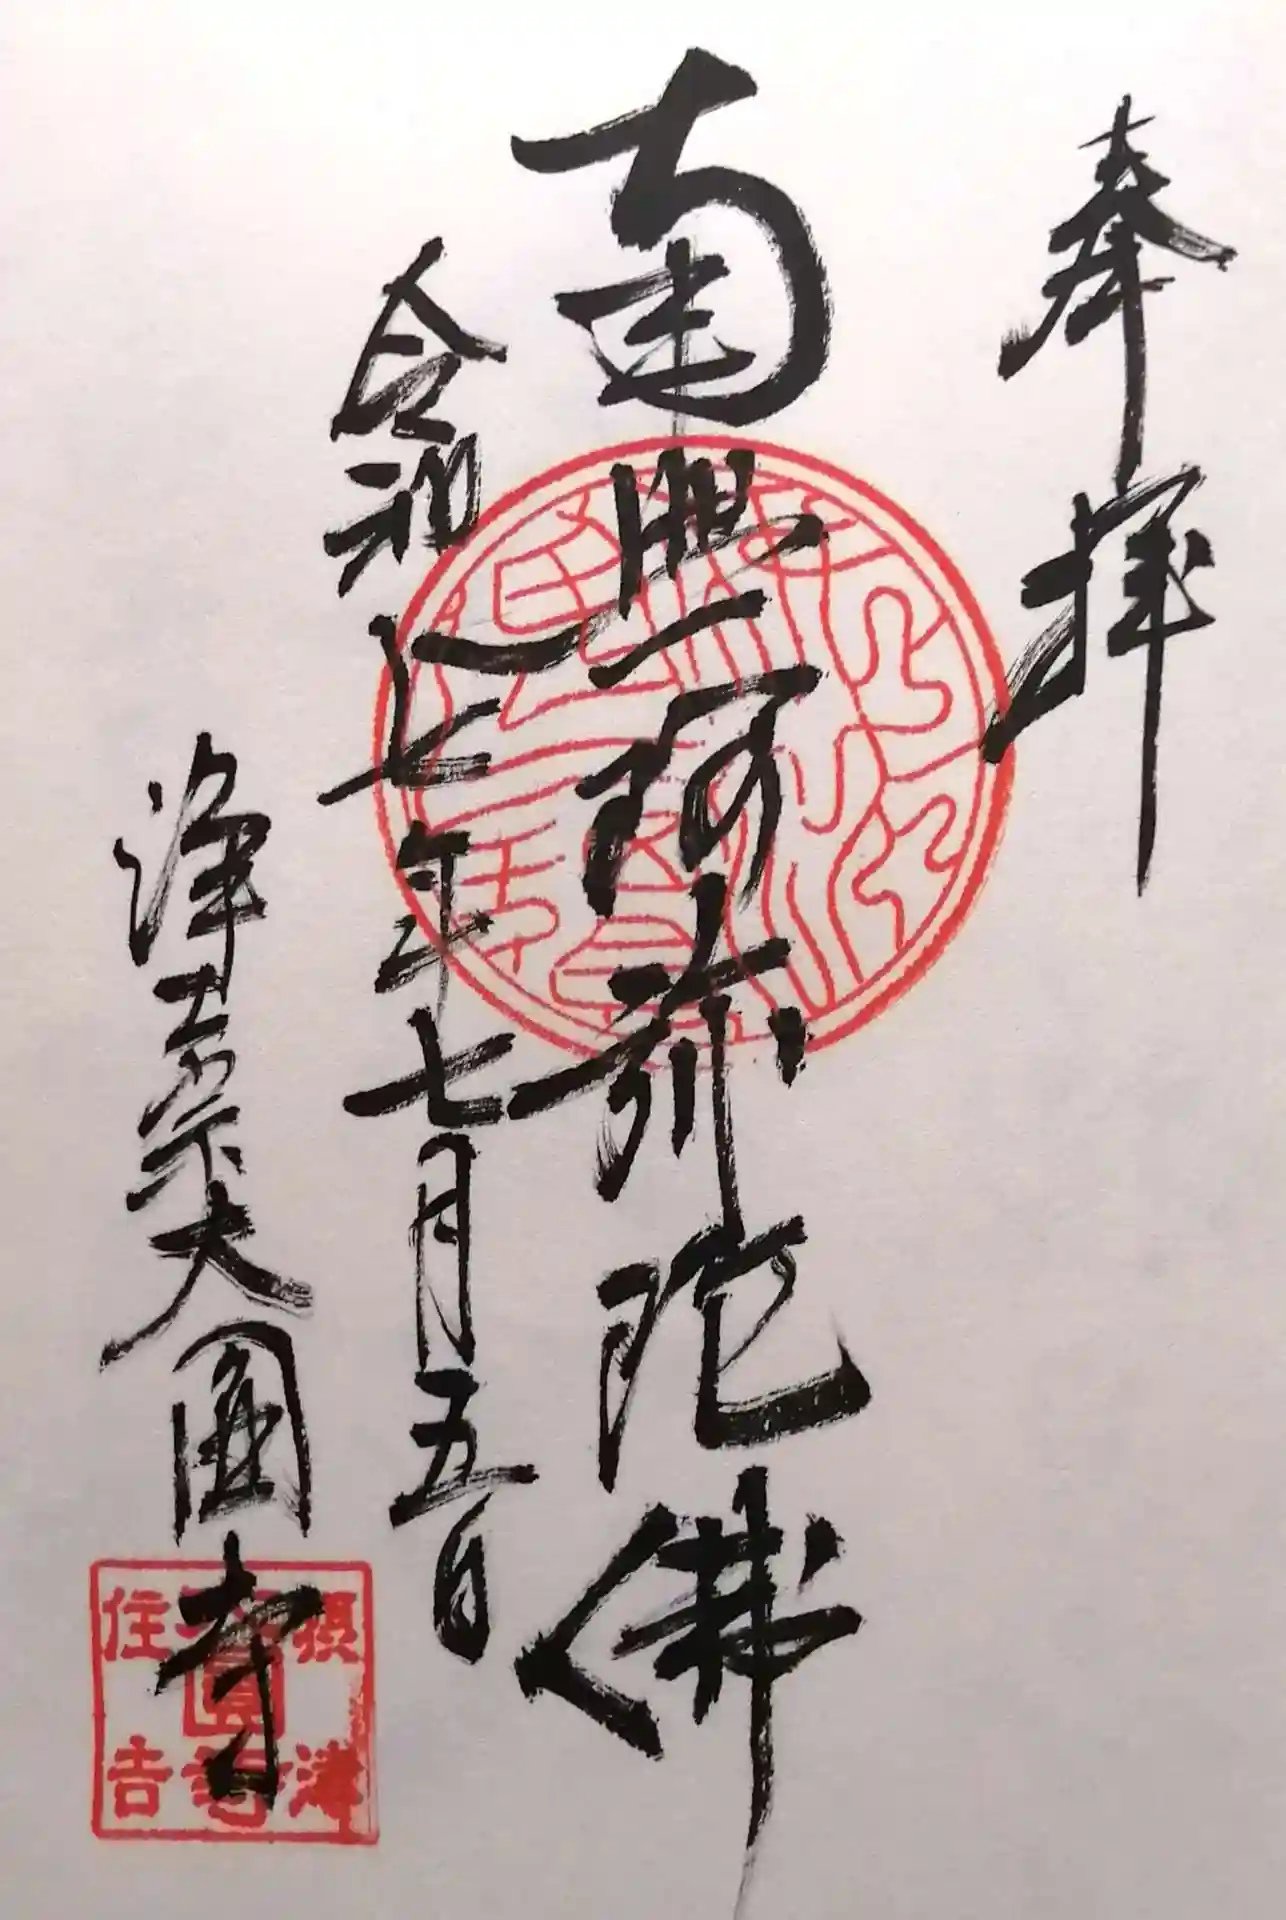 奉拝
南無阿弥陀佛
令和七年七月五日
浄土宗大圓寺
摂津
大圓寺
住吉